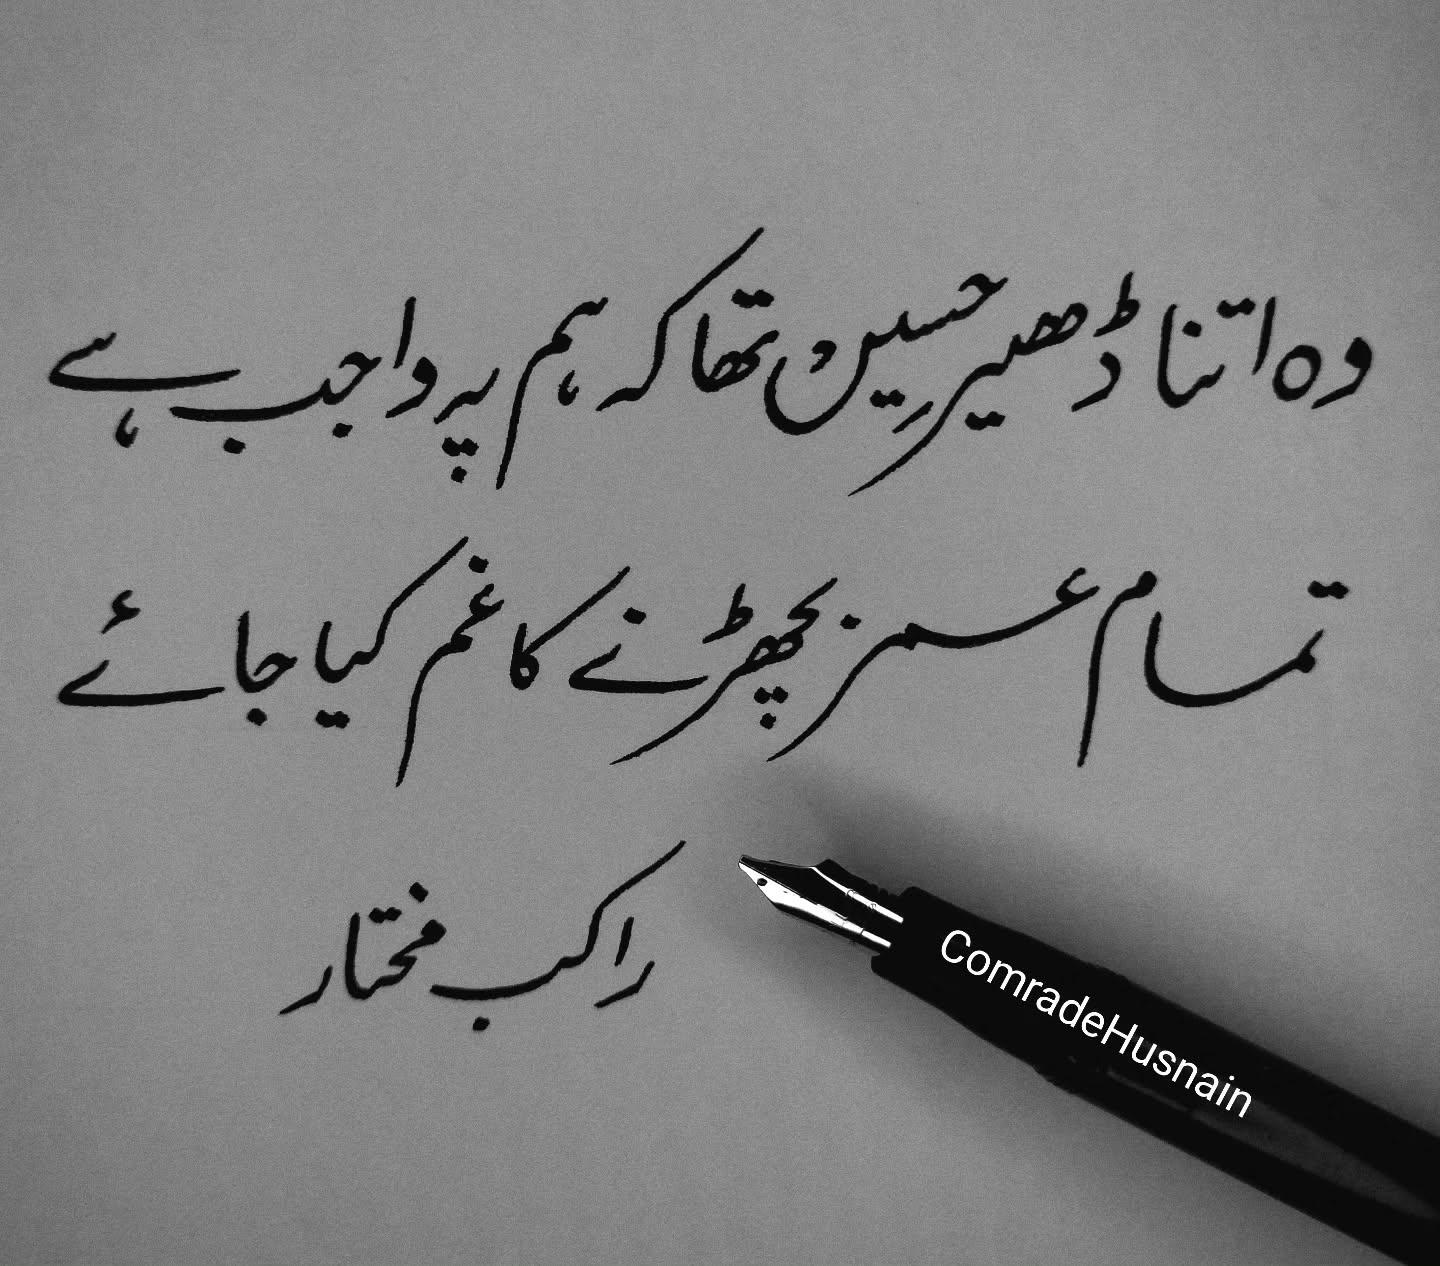 وہ اتنا ڈھیر حسیں تھا کہ ہم پہ واجب ہے
تمام عمر بچھڑنے کا غم کیا جائے
راکب مختار
ComradeHusnain